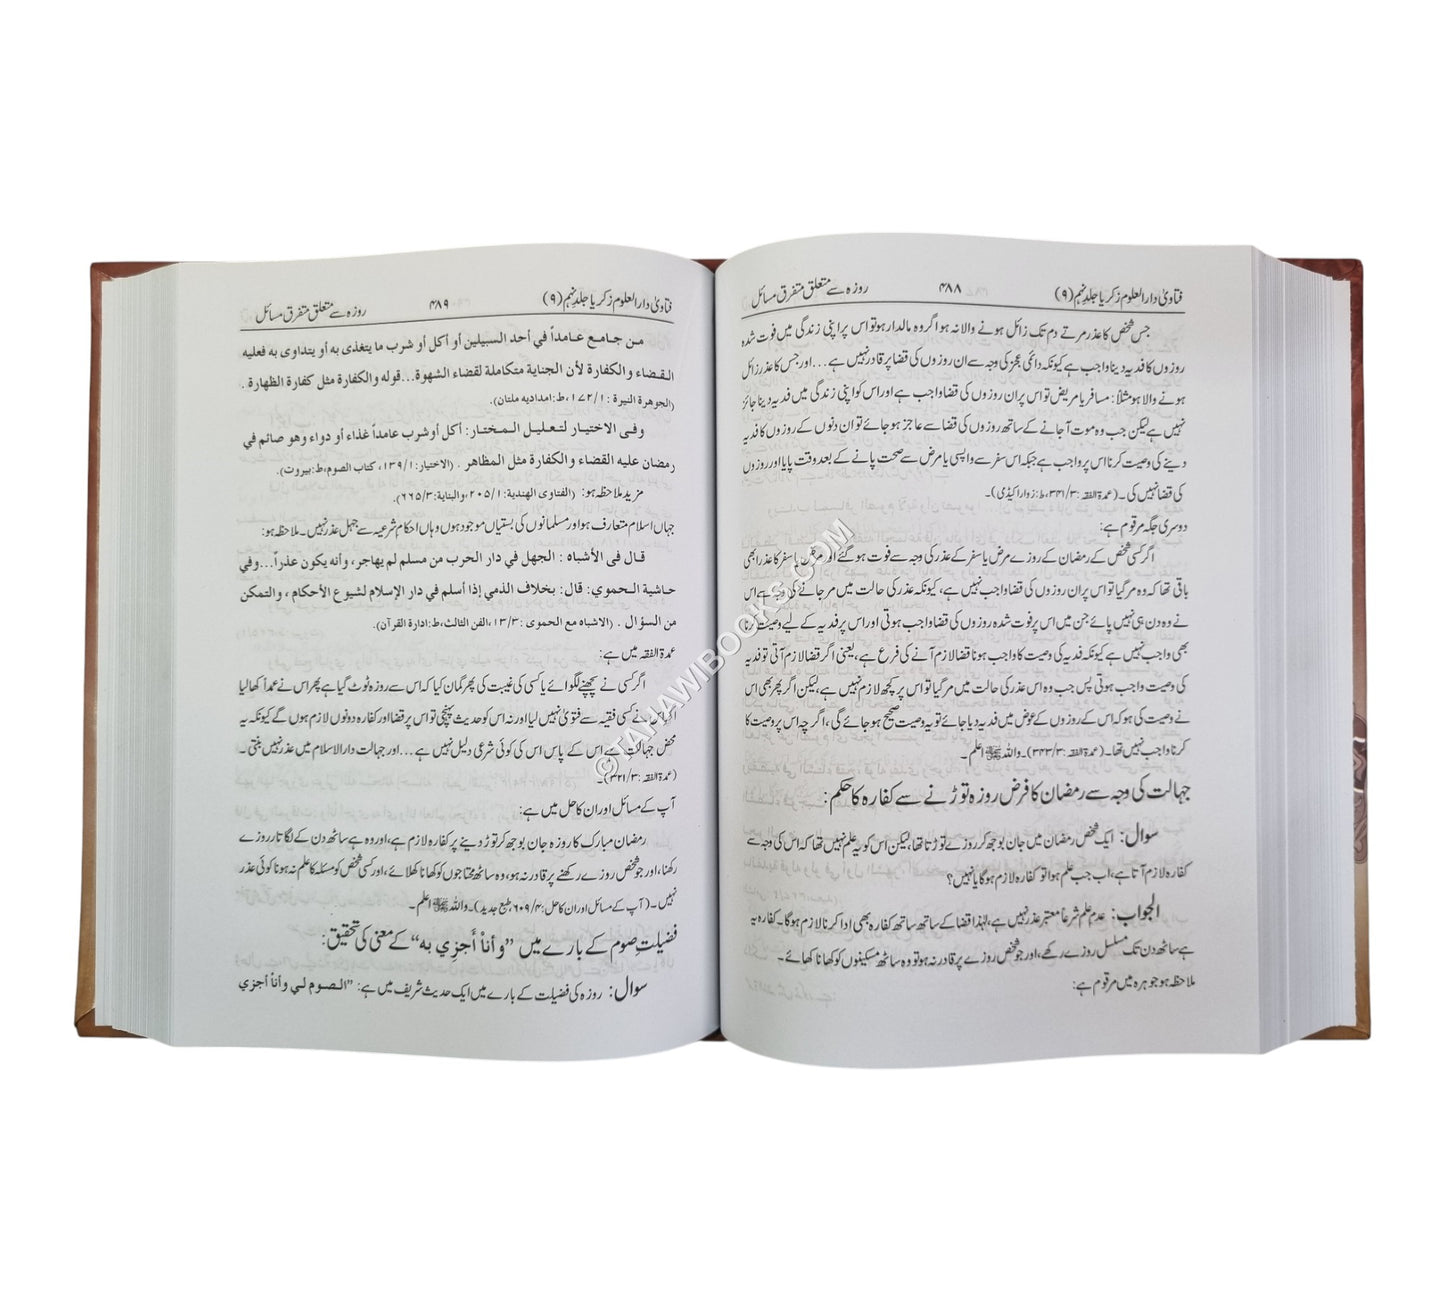 فتاویٰ دارالعلوم زکریا جلد نہم (۹)
۴۸۸
روزہ سے متعلق متفرق مسائل
جس شخص کا عذر مرتے دم تک زائل ہونے والا نہ ہو اگر وہ مالدار ہو تو اس پر اپنی زندگی میں فوت شدہ
روزوں کا فدیہ دینا واجب ہے کیونکہ دائمی عجز کی وجہ سے ان روزوں کی قضا پر قادر نہیں ہے ... اور جس کا عذر زائل
ہونے والا ہو مثلاً: مسافر یا مریض تو اس پر ان روزوں کی قضا واجب ہے اور اس کو اپنی زندگی میں فدیہ دینا جائز
نہیں ہے لیکن جب وہ موت آجانے کے ساتھ روزوں کی قضا سے عاجز ہو جائے تو ان دنوں کے روزوں کا فدیہ
دینے کی وصیت کرنا اس پر واجب ہے جبکہ اس سفر سے واپسی یا مرض سے صحت پانے کے بعد وقت پایا اور روزوں
کی قضا نہیں کی۔ (عمدۃ الفقہ: ۳۴۱/۳، ط: زوار اکیڈمی)۔
دوسری جگہ مرقوم ہے:
اگر کسی شخص کے رمضان کے روزے مرض یا سفر کے عذر کی وجہ سے فوت ہو گئے اور مرض یا سفر کا عذر ابھی
باقی تھا کہ وہ مر گیا تو اس پر ان روزوں کی قضا واجب نہیں ہے، کیونکہ عذر کی حالت میں مر جانے کی وجہ سے اس
نے وہ دن ہی نہیں پائے جن میں اس پر فوت شدہ روزوں کی قضا واجب ہوتی اور اس پر فدیہ کے لیے وصیت کرنا
بھی واجب نہیں ہے کیونکہ فدیہ کی وصیت کا واجب ہونا قضا لازم آنے کی فرع ہے، یعنی اگر قضا لازم آتی تو فدیہ
کی وصیت واجب ہوتی پس جب وہ اس عذر کی حالت میں مر گیا تو اس پر کچھ لازم نہیں ہے، لیکن اگر پھر بھی اس
نے وصیت کی ہو کہ اس کے روزوں کے عوض میں فدیہ دیا جائے تو یہ وصیت صحیح ہو جائے گی، اگر چہ اس پر وصیت کا
کرنا واجب نہیں تھا۔ (عمدۃ الفقہ: ۳۴۳/۳)۔ واللہ ﷻ اعلم۔
جہالت کی وجہ سے رمضان کا فرض روزہ توڑنے سے کفارہ کا حکم:
سوال: ایک شخص رمضان میں جان بوجھ کر روزے توڑتا تھا، لیکن اس کو یہ علم نہیں تھا کہ اس کی وجہ سے
کفارہ لازم آتا ہے، اب جب علم ہوا تو کفارہ لازم ہوگا یا نہیں؟
الجواب: عدم علم شرعاً معتبر عذر نہیں ہے، لہٰذا قضا کے ساتھ ساتھ کفارہ بھی ادا کرنا لازم ہوگا۔ کفارہ یہ
ہے ساٹھ دن تک مسلسل روزے رکھے، اور جو شخص روزے پر قادر نہ ہو تو وہ ساٹھ مسکینوں کو کھانا کھلائے۔
ملاحظہ ہو جوہرہ میں مرقوم ہے:
فتاویٰ دارالعلوم زکریا جلد نہم (۹)
۴۸۹
روزہ سے متعلق متفرق مسائل
من جامع عامداً في أحد السبيلين أو أكل أو شرب ما يتغذى به أو يتداوى به فعليه
القضاء والكفارة لأن الجناية متكاملة لقضاء الشهوة...قوله والكفارة مثل كفارة الظهارة .
(الجوهرة النيرة : ۱/ ۱۷۲، ط: امداديه ملتان).
وفى الاختيار لتعليل المختار: أكل أو شرب عامداً غذاء أو دواء وهو صائم في
رمضان عليه القضاء والكفارة مثل المظاهر . (الاختيار: ۱/ ۱۳۹، كتاب الصوم، ط: بيروت).
مزید ملاحظہ ہو: (الفتاوى الهندية: ۱/ ۲۰۵، والبناية: ۳/ ۶۶۵).
جہاں اسلام متعارف ہو اور مسلمانوں کی بستیاں موجود ہوں وہاں احکام شرعیہ سے جہل عذر نہیں۔ ملاحظہ ہو:
قال فى الأشباه : الجهل في دار الحرب من مسلم لم يهاجر، وأنه يكون عذراً...وفي
حاشية الحموي: قال: بخلاف الذمي إذا أسلم في دار الإسلام لشيوع الأحكام ، والتمكن
من السؤال . (الاشباه مع الحموى : ۳/ ۱۳، الفن الثالث، ط: ادارة القرآن).
عمدۃ الفقہ میں ہے:
اگر کسی نے پچھنے لگوائے یا کسی کی غیبت کی پھر گمان کیا کہ اس سے روزہ ٹوٹ گیا ہے پھر اس نے عمداً کھالیا
اگر اس نے کسی فقیہ سے فتویٰ نہیں لیا اور نہ اس کو حدیث پہنچی تو اس پر قضا اور کفارہ دونوں لازم ہوں گے کیونکہ یہ
محض جہالت ہے اس کے پاس اس کی کوئی شرعی دلیل نہیں ہے ... اور جہالت دار الاسلام میں عذر نہیں بنتی۔
(عمدۃ الفقہ: ۳۲۱/۳)۔
آپ کے مسائل اور ان کا حل میں ہے:
رمضان مبارک کا روزہ جان بوجھ کر توڑ دینے پر کفارہ لازم ہے، اور وہ ہے ساٹھ دن کے لگاتار روزے
رکھنا، اور جو شخص روزے رکھنے پر قادر نہ ہو، وہ ساٹھ محتاجوں کو کھانا کھلائے، اور کسی شخص کو مسئلہ کا علم نہ ہونا کوئی عذر
نہیں۔ (آپ کے مسائل اور ان کا حل: ۶۰۹/۴، طبع جدید)۔ واللہ ﷻ اعلم۔
فضیلتِ صوم کے بارے میں "وأنا أجزي به" کے معنی کی تحقیق:
سوال: روزہ کی فضیلت کے بارے میں ایک حدیث شریف میں ہے: "الصوم لي وأنا أجزي
©TAHAWIBOOKS.COM